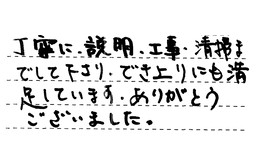 丁寧に、説明、工事、清掃ま
でして下さり、でき上りにも満
足しています。ありがとう
ございました。